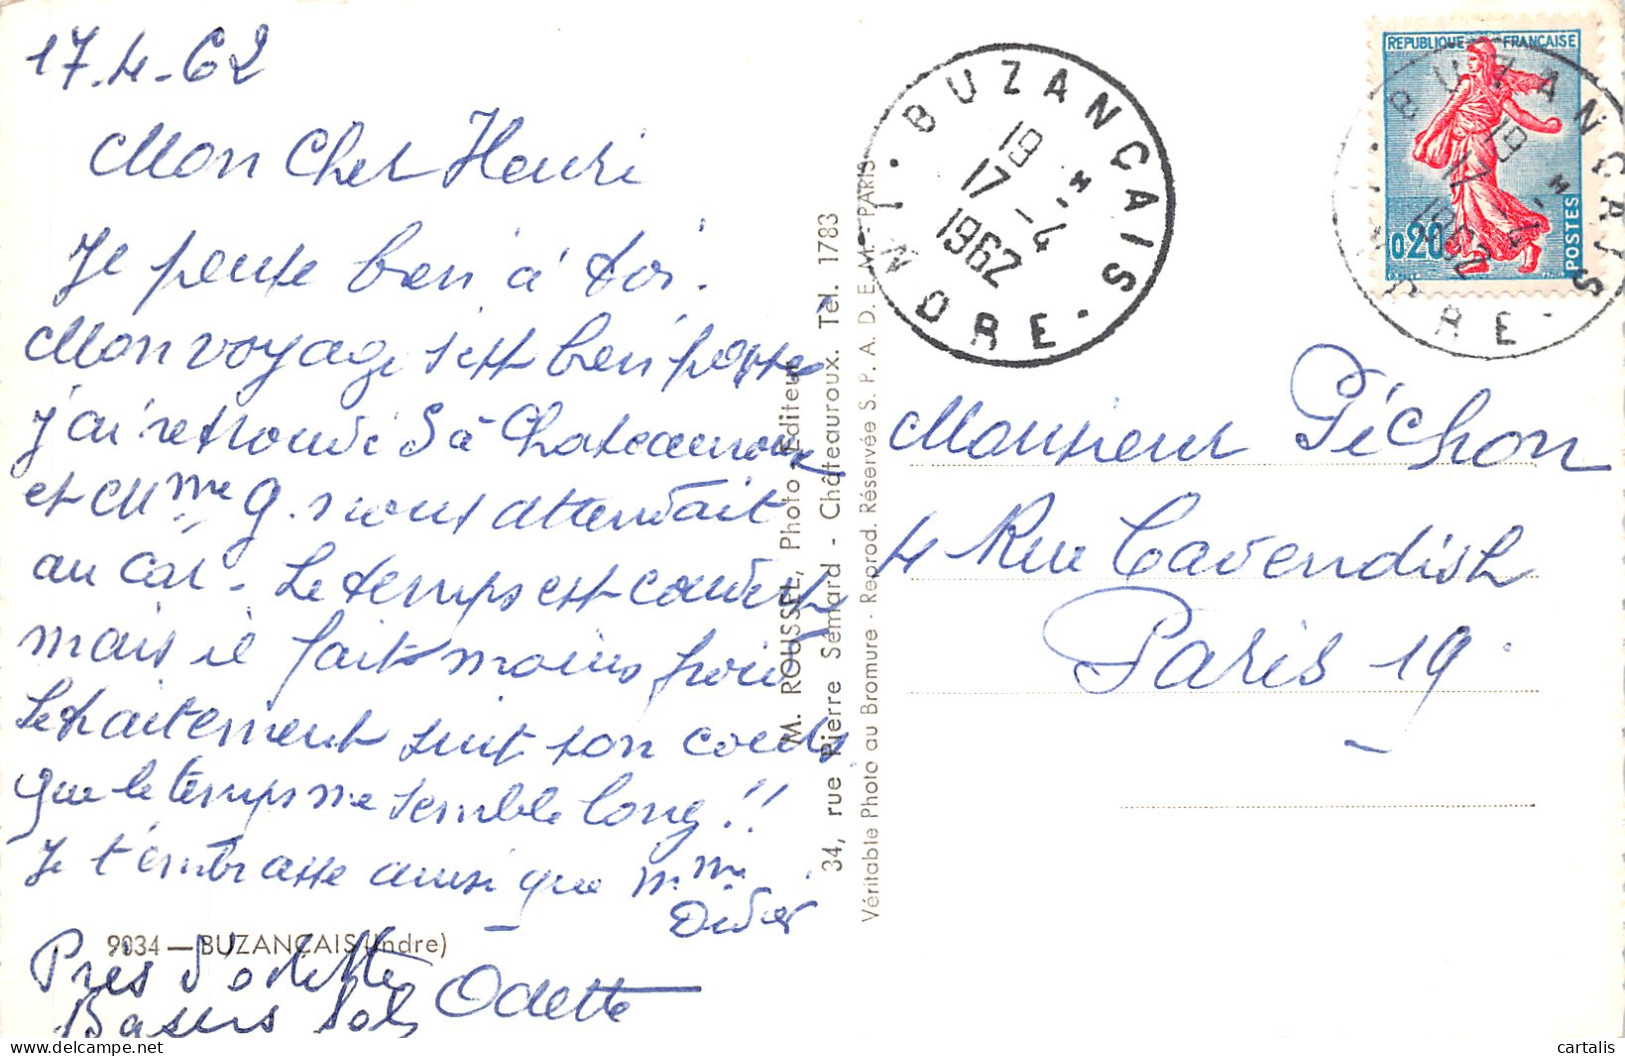 17.4.62
Mon Cher Henri
Je pense bien à toi.
Mon voyage s'est bien passé
j'ai retrouvé S à Chateauroux
et Mme G. nous attendait
au car - Le temps est couvert
mais il fait moins froid
Le traitement suit son cours
que le temps me semble long !!
Je t'embrasse ainsi que Mme
Didier
Odette
9034 — BUZANÇAIS (Indre)
Près d'odette
Basers
M. ROUSSEL, Photo Éditeur
34, rue Pierre Sémard - Châteauroux. Tél. 1783
Véritable Photo au Bromure - Reprod. Réservée S. P. A. D. E. M. - PARIS
BUZANÇAIS
18 H
17 - 4
1962
INDRE
REPUBLIQUE FRANÇAISE
0,20
POSTES
BUZANÇAIS
18 H
17 - 4
1962
INDRE
Monsieur Péchon
4 Rue Cavendish
Paris 19
cartalis